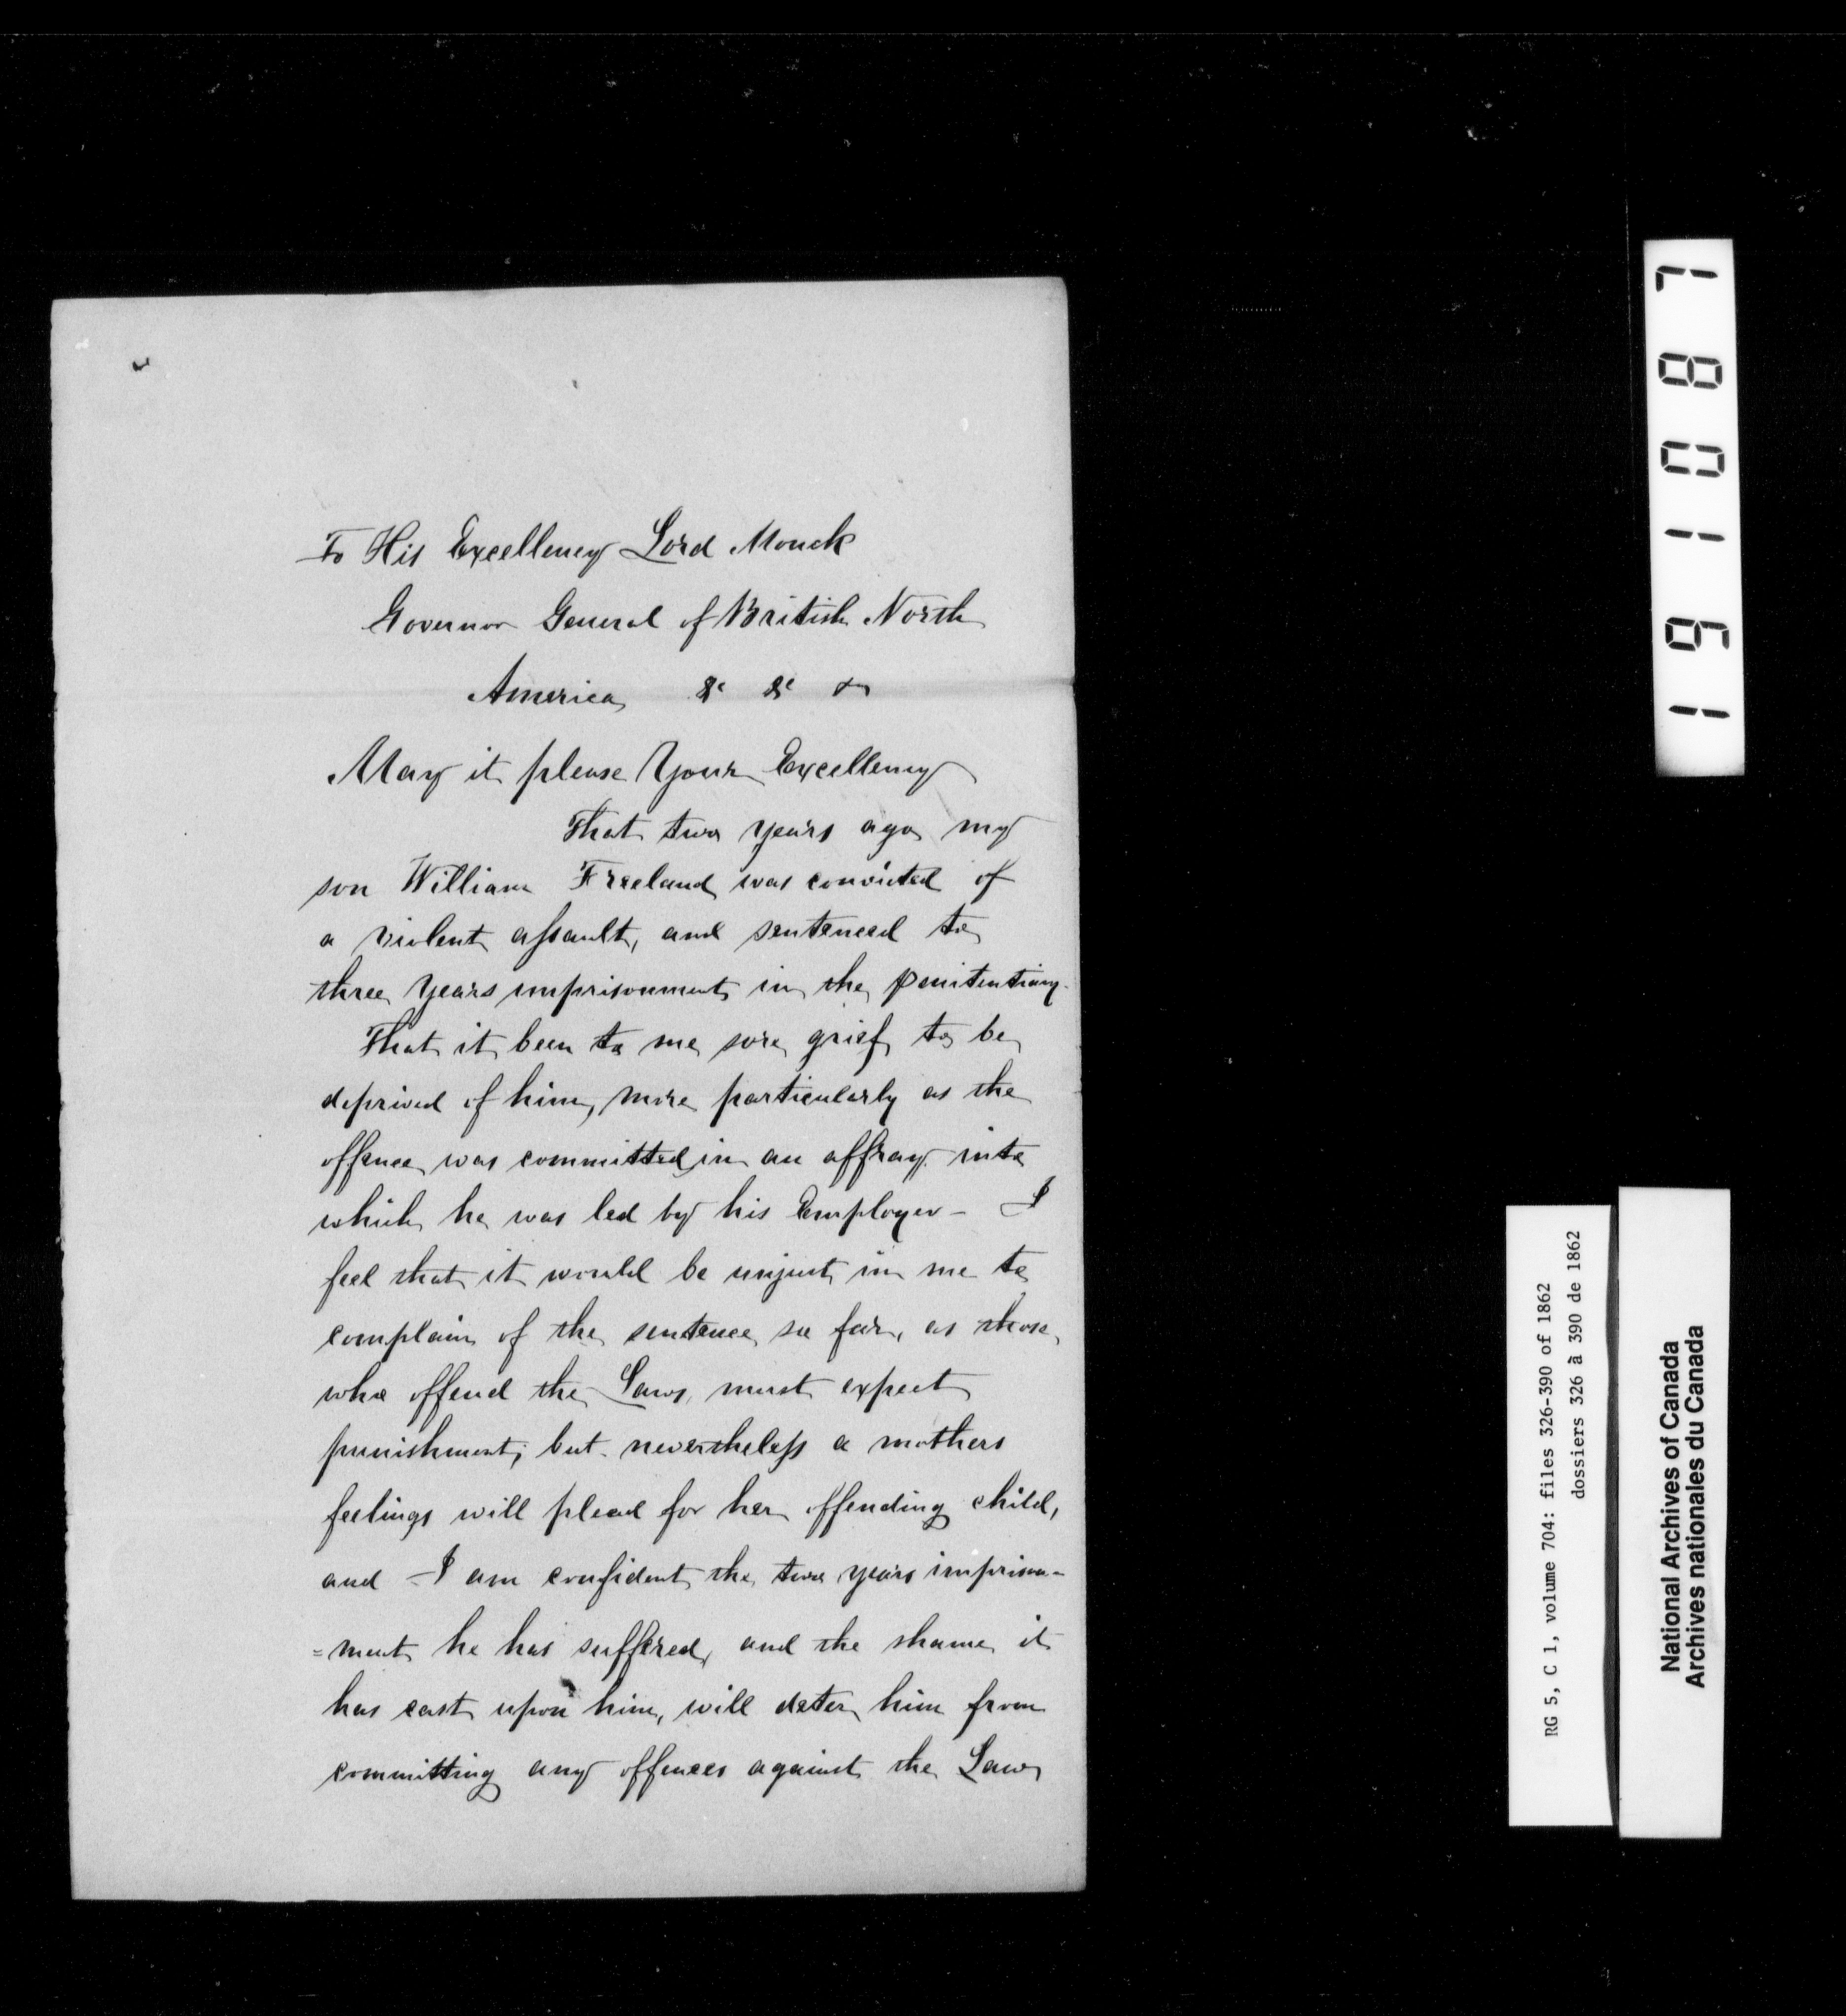 To His Excellency Lord Monck
Governor General of British North
America &c &c &
May it please Your Excellency
That two years ago my
son William Freeland was convicted of
a violent assault, and sentenced to
three years imprisonment in the penitentiary.
That it been to me sore grief to be
deprived of him, more particularly as the
offence was committed in an affray into
which he was led by his Employer - I
feel that it would be unjust in me to
complain of the sentence so far, as those
who offend the Laws must expect
punishment; but nevertheless a mothers
feelings will plead for her offending child,
and I am confident the two years imprison-
=ment he has suffered, and the shame it
has cast upon him, will deter him from
committing any offences against the Laws
191087
RG 5, C 1, volume 704: files 326-390 of 1862
dossiers 326 à 390 de 1862
National Archives of Canada
Archives nationales du Canada